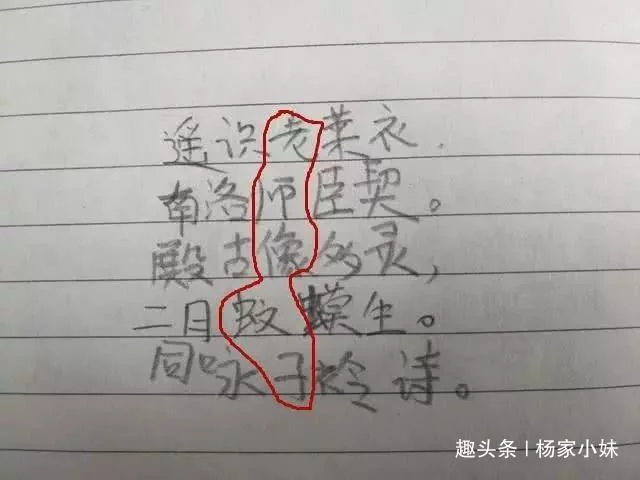 遥识老莱衣.
南洛师臣契。
殿古像多灵,
二月蚊蟆生。
同咏子怜诗。
趣头条 | 杨家小妹